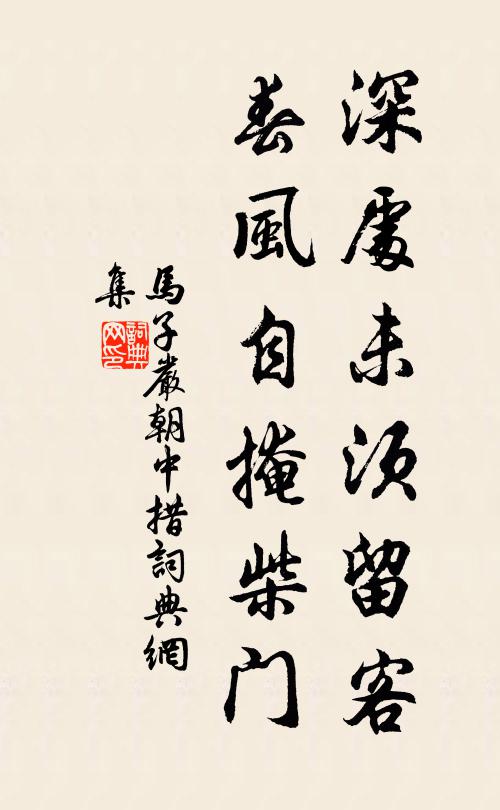 深處未須留客
春風自掩柴门
馬子嚴朝中措詞典網
集
詞典
网印